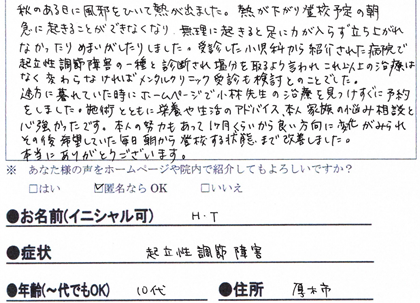 秋のある日に風邪をひいて熱が出ました。熱が下がり登校予定の朝
急に起きることができなくなり、無理に起きると足に力が入らず立ち上がれ
なかったりめまいがしたりしました。受診した小児科から紹介された病院で
起立性調節障害の一種と診断され塩分を取るよう言われこれ以上の治療は
なく変わらなければメンタルクリニック受診も検討とのことでした。
途方に暮れていた時にホームページで小林先生の治療を見つけすぐに予約
をしました。施術とともに栄養や生活のアドバイス、本人家族の悩み相談と
心強かったです。本人の努力もあって1ヶ月くらいから良い方向に変化がみられ
その後希望していた毎日朝から登校する状態まで改善しました。
本当にありがとうございます。
※ あなた様の声をホームページや院内で紹介してもよろしいですか？
□はい ☑匿名なら OK □いいえ
●お名前(イニシャル可) H・T
●症状 起立性調節障害
●年齢(～代でもOK) 10代 ●住所 厚木市